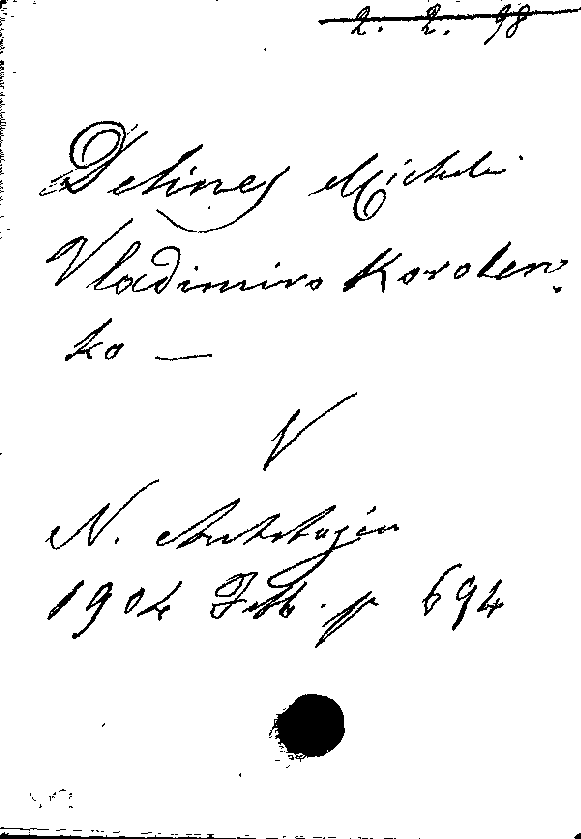 2. 2. 98
Delines Michele
Vladimiro Korolen-
ko —
V
N. Antologia
1904 Feb. p 694